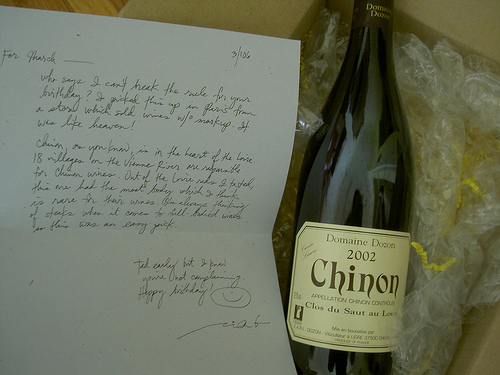 3/1/06
For March
who says I can't break the rule for your
birthday? I picked this up in Paris from
a store which sold wines w/o markup. It
was like heaven!
Chinon, as you know, is in the heart of the Loire
18 villages on the Vienne River are responsible
for chinon wines. Out of the Loire reds I tasted,
this one had the most body which I think
is rare for their wines. I'm always thinking
of steaks when it comes to full-bodied wines
so this was an easy pick.
Tad early but I know
you're not complaining.
Happy birthday!
Domaine
Dozon
Domaine Dozon
2002
Chinon
APPELLATION CHINON CONTRÔLÉE
Clos du Saut au Loup
Mis en bouteilles par